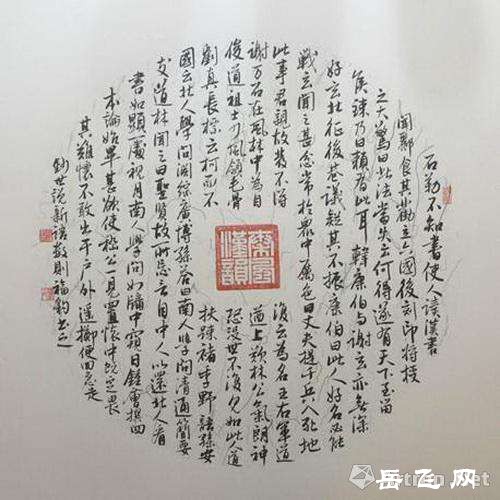 石勒不知書使人讀漢書
聞酈食其勸立六國後刻印將授
之大驚曰此法當失云何得遂有天下至留
侯諫乃曰賴有此耳韓康伯與謝玄亦無深
好玄北征後巷議疑其不振康伯曰此人好名必能
戰玄聞之甚忿常於眾中厲色曰丈夫提千兵入死地
此事君親故發不得復云為名王右軍道
謝万石在林中為自遒上歎林公氣朗神
俊道祖士少風領毛骨恐沒世不復見如此人道
劉真長標云柯而不扶疎褚季野語孫安
國云北人學問淵綜廣博孫答曰南人學問清通簡要
支道林聞之曰聖賢故所忘言自中人以還北人看
書如顯處視月南人學問如牖中窺日鍾會撰四
本論始畢甚欲使嵇公一見置懷中既定畏
其難懷不敢出于戶外遙擲便回急走
鈔世說新語數則
秦風漢韻
岳飞网